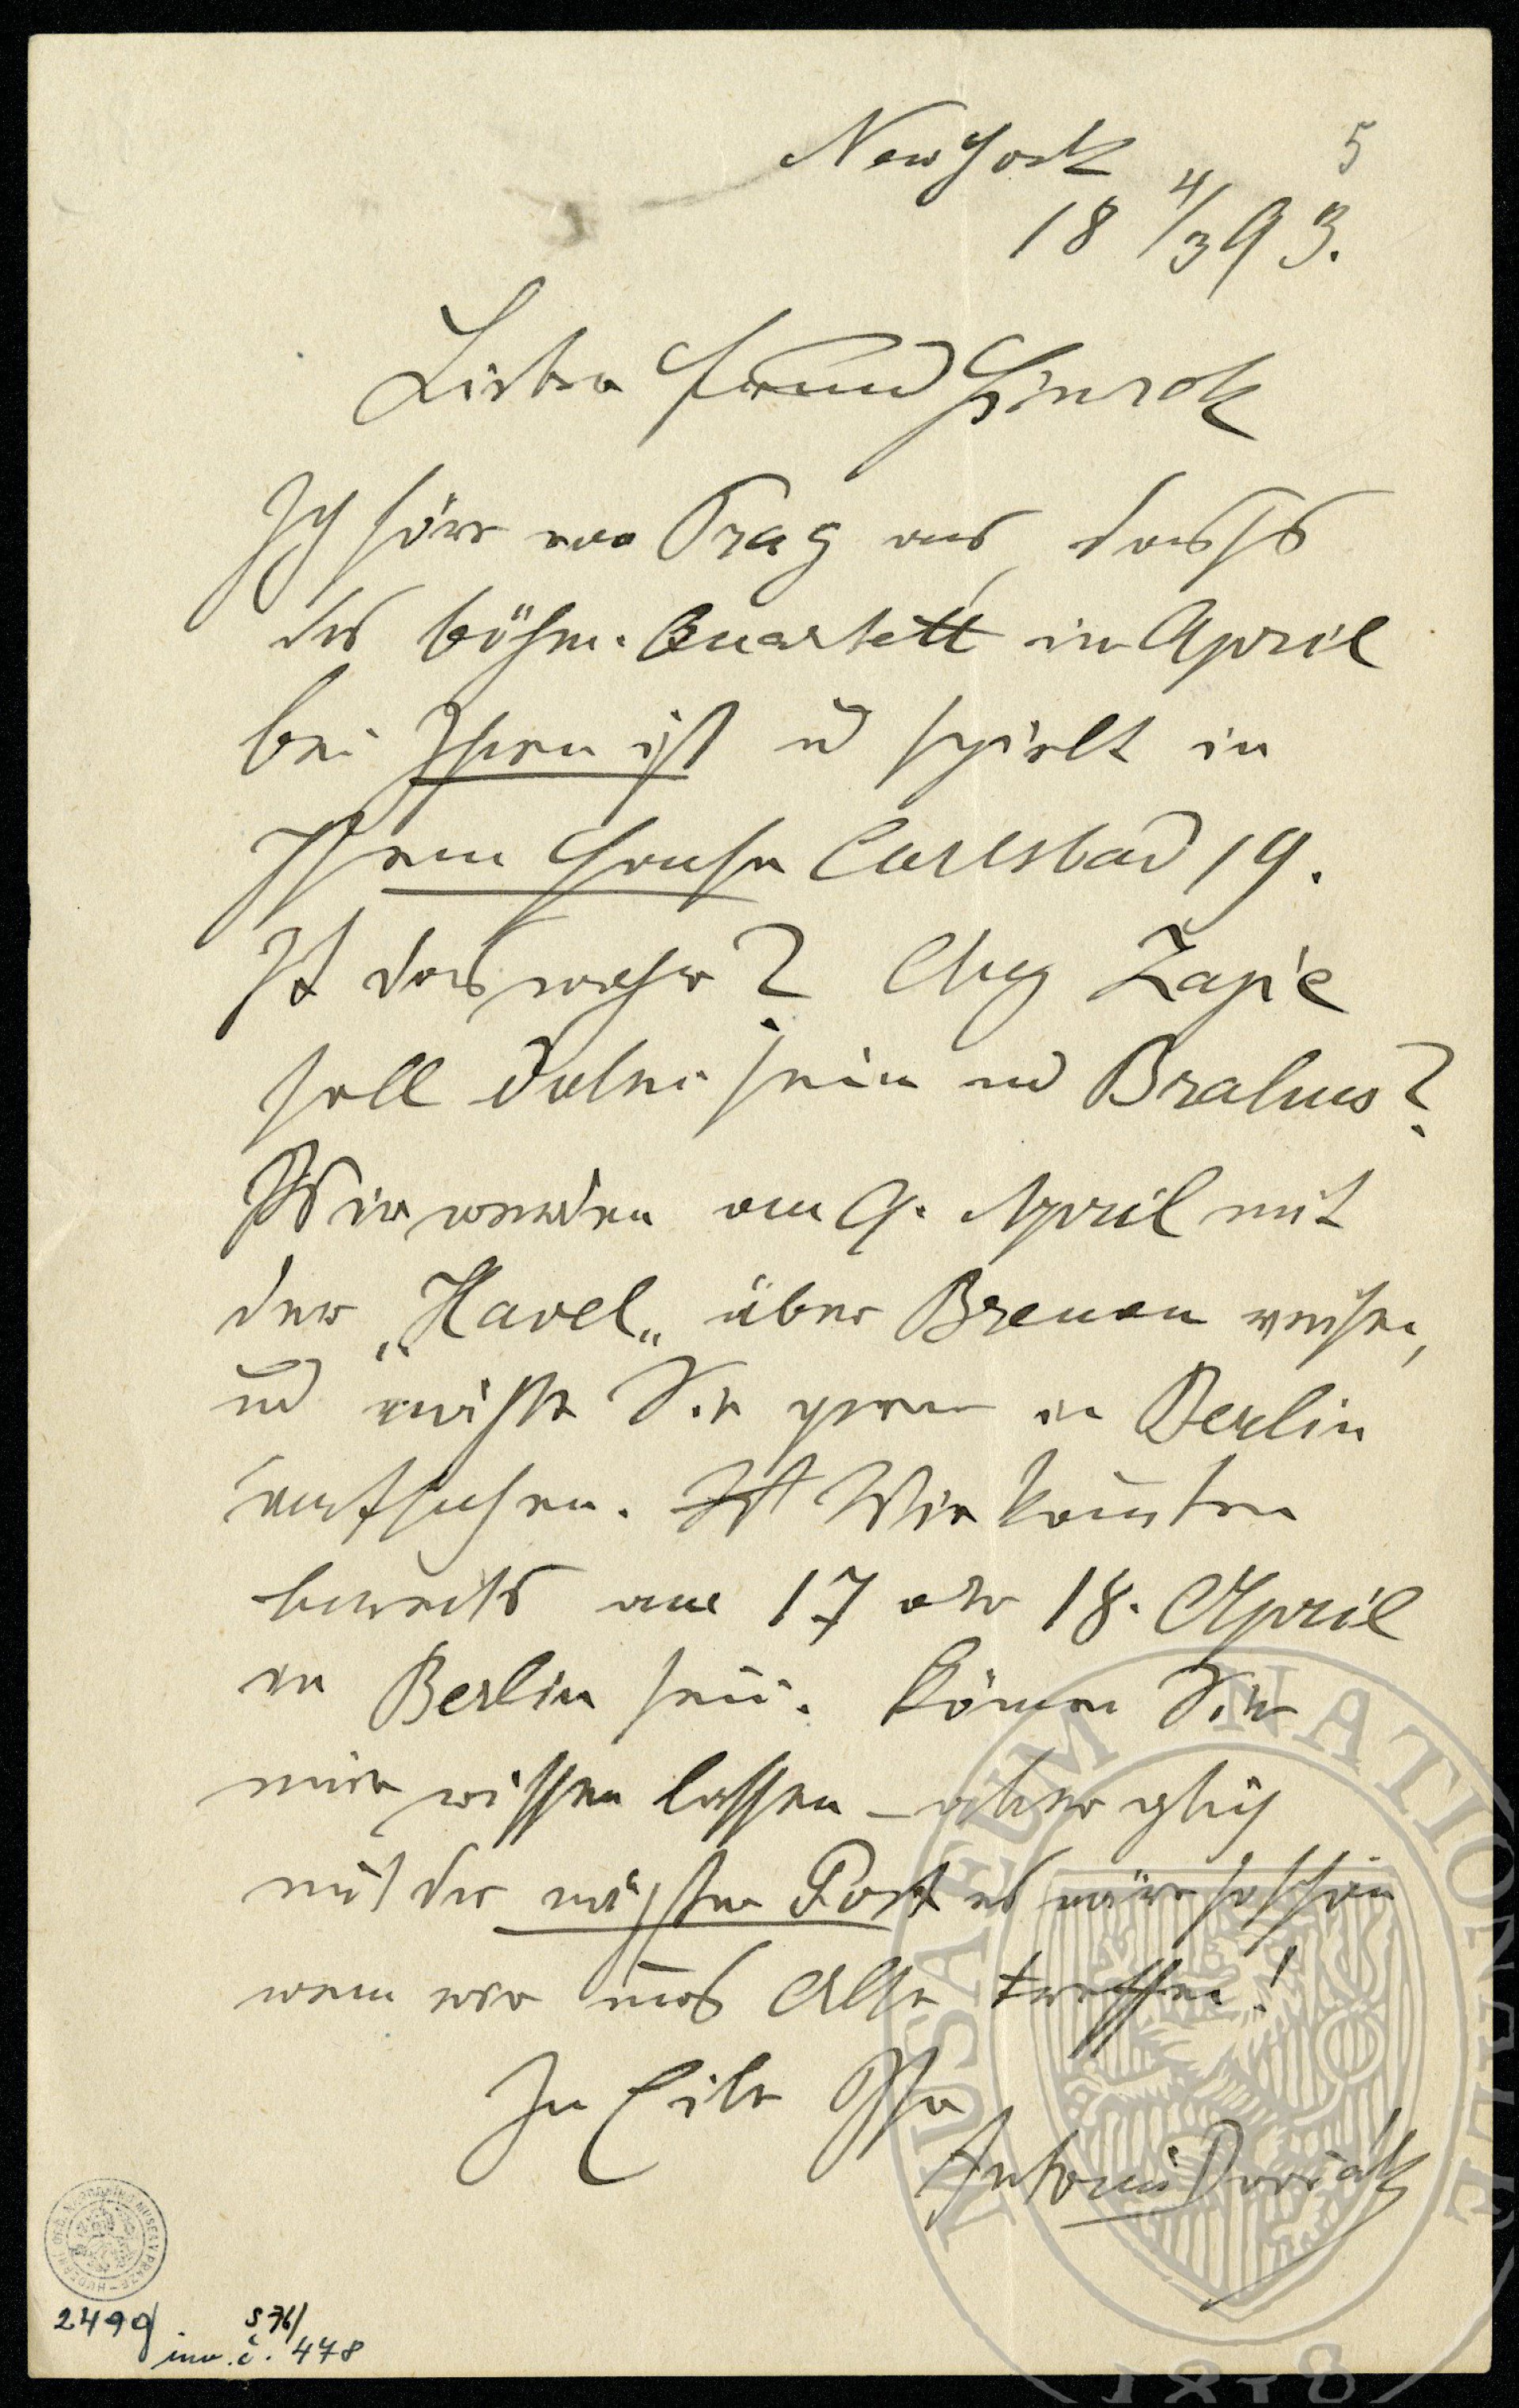 New York
5
18 4/3 95.
Lieber Freund Simrock
Ich höre von Prag aus, dass
das böhm. Quartett im April
bei Ihnen ist ud spielt in
Ihrem Hause Carlsbad 19.
Ist das wahr? Auch
soll dabei sein und Brahms?
Wir werden am 9. April mit
der „Havel„ über Bremen reisen,
und möchte Sie gerne in Berlin
aufsuchen. Ist Wir könnten
bereits am 17 oder 18. April
in Berlin sein. Können Sie
mir wissen lassen – aber gleich
mit der nächsten Post es wäre so schön
wenn wir uns Alle treffen!
In Eile Ihr
Antonín Dvořák
MUSAEUM NATIONALE
1818
2499
S 76/
inv. č. 478